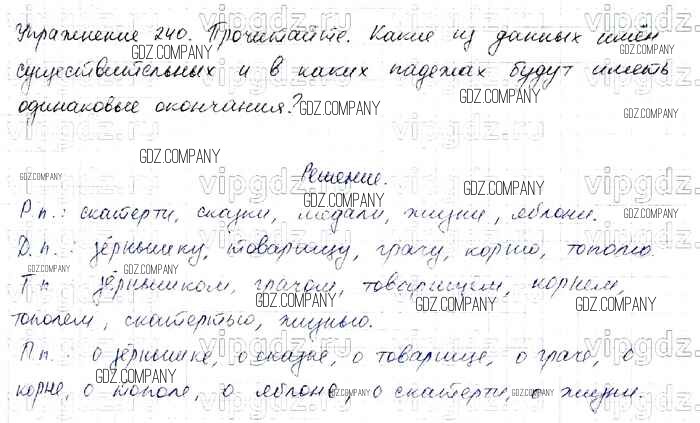 Упражнение 240. Прочитайте. Какие из данных имён
существительных и в каких падежах будут иметь
одинаковые окончания?
Решение.
Р.п.: скатерти, сказки, медали, жизни, яблони.
Д.п.: зёрнышку, товарищу, грачу, корню, тополю.
Т.п. зёрнышком, грачом, товарищем, корнем,
тополем, скатертью, жизнью.
П.п. о зёрнышке, о сказке, о товарище, о граче, о
корне, о тополе, о яблоне, о скатерти, о жизни.
GDZ.COMPANY
vipgdz.ru